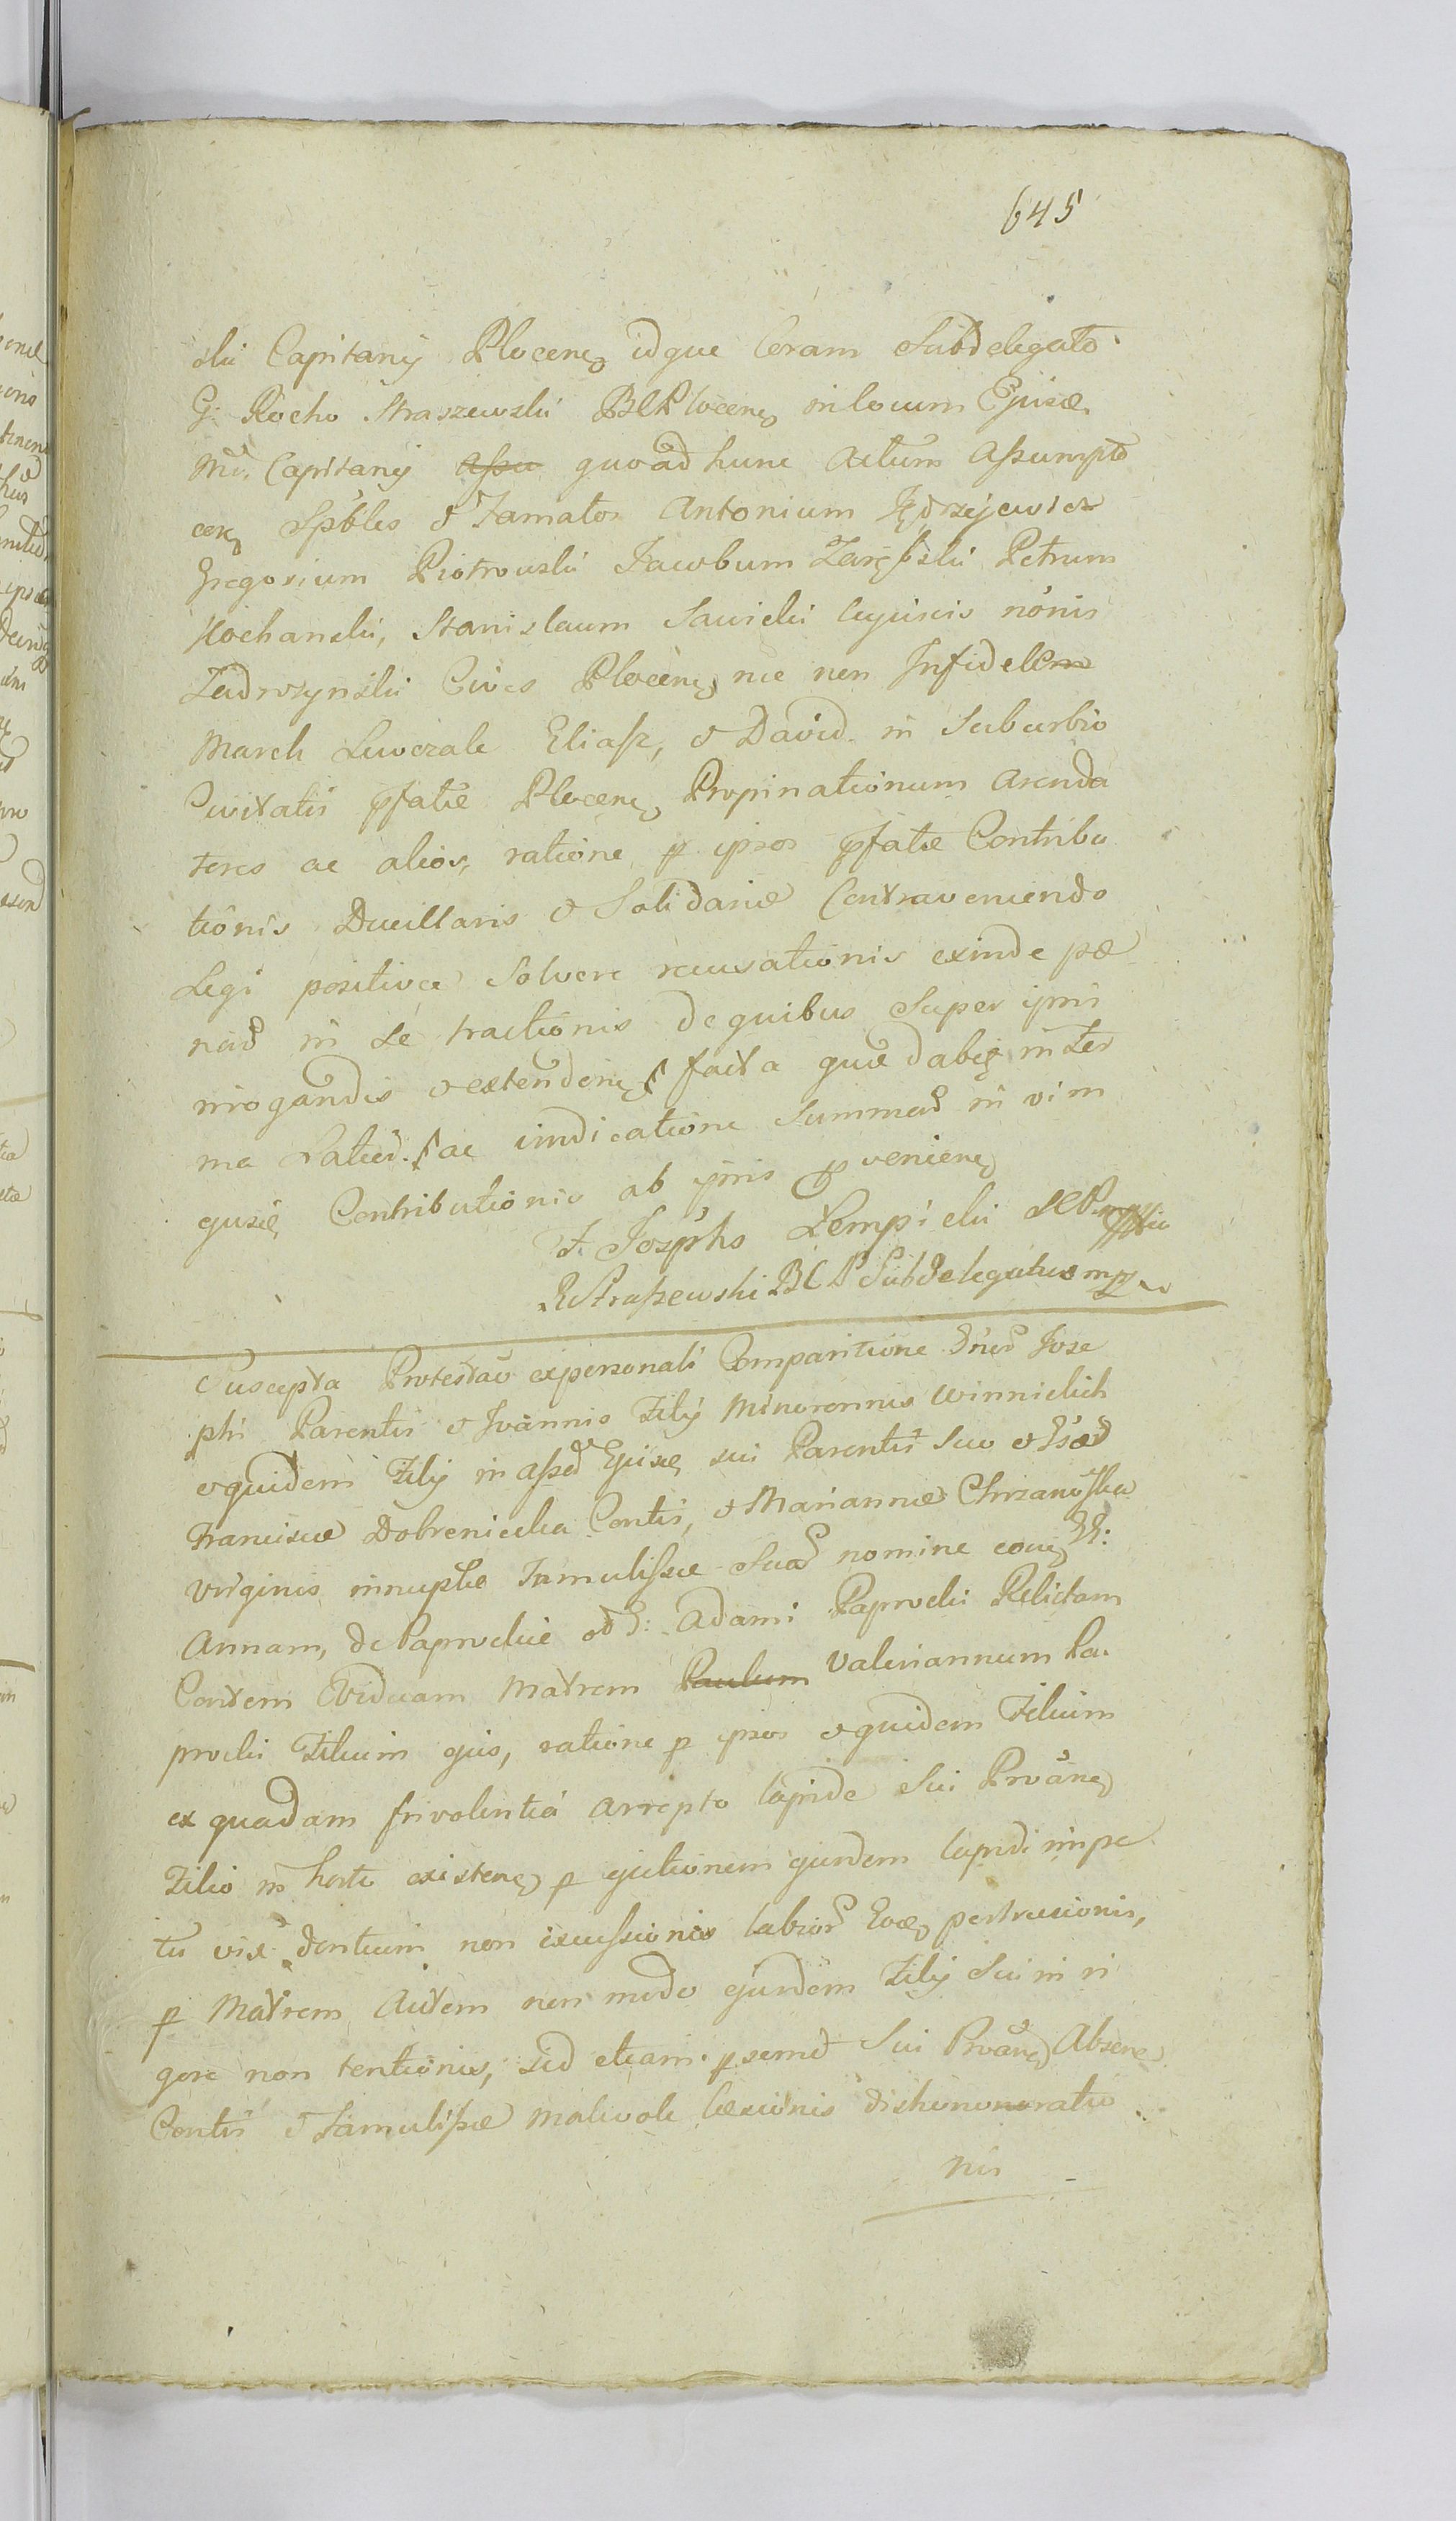 645
ski Capitanij Plocenȩ idque Coram Subdelegato
G: Rocho Straszewski BCPlocenȩ in locum Ejusdȩ
Md. Capitanij Assu quoad hunc Actum Assumpto
Spbles & Famatos Antonium Jędrzejewicz
Gregorium Piotrowski Jacobum Zarębski Petrum
Kochanski, Stanislaum Sawicki cujusvis nonis
Zadrozynski Cives Plocenȩ nec non Infidelem
March Lewczale Eliasz, & David in Suburbio
Civitatis pfatæ Plocenȩ Propinationum Arenda
tores ac alios, ratione p ipsos pfatæ Contribu
tionis Ducillaris & Solidariæ Contraveniendo
Legi positivæ Solvere recusationis exinde pæ
nar in se tractionis de quibus Super ipsis
irrogandis & extendenȩ facta quæ dabȩ in Ter
mo Latior. ac iudicatione Summar in vim
ejusdȩ Contributionis ab ipsis pvenienȩ
F. Josephs Lempicki
RStraszewski BCP Subdelegatus mp
Suscepta Protestao ex personali Comparitione Gner Jose
phi Parentis & Joannis Filij Minorennis Winnickich
& quidem Filij in assa Ejusdȩ sui Parentis Suo &
Franciscæ Dobrenicka Contis, & Mariannæ Chrzanoska
Virginis innuptæ Famulissæ Suar nomine
Annam, de Paprockie Adami Paprocki Relictam
Contem Viduam Matrem Paulum Valeriannum Pa.
procki Filium ejus, ratione p ipsos & quidem Filium
ex quadam frivolentia arrepto lapide Sui Proanȩ
Filio in horto existenȩ p ejectionem ejusdem lapidi impe
tu vix dentium non excussionis labior pertrusionis,
p Matrem Autem non modo ejusdem Filij Sui in ri
gore non tentionis, sed etiam p semet Sui Proanȩ Absenȩ
Contis & Famulissæ Malivole læsionis dishonnoratio
nis